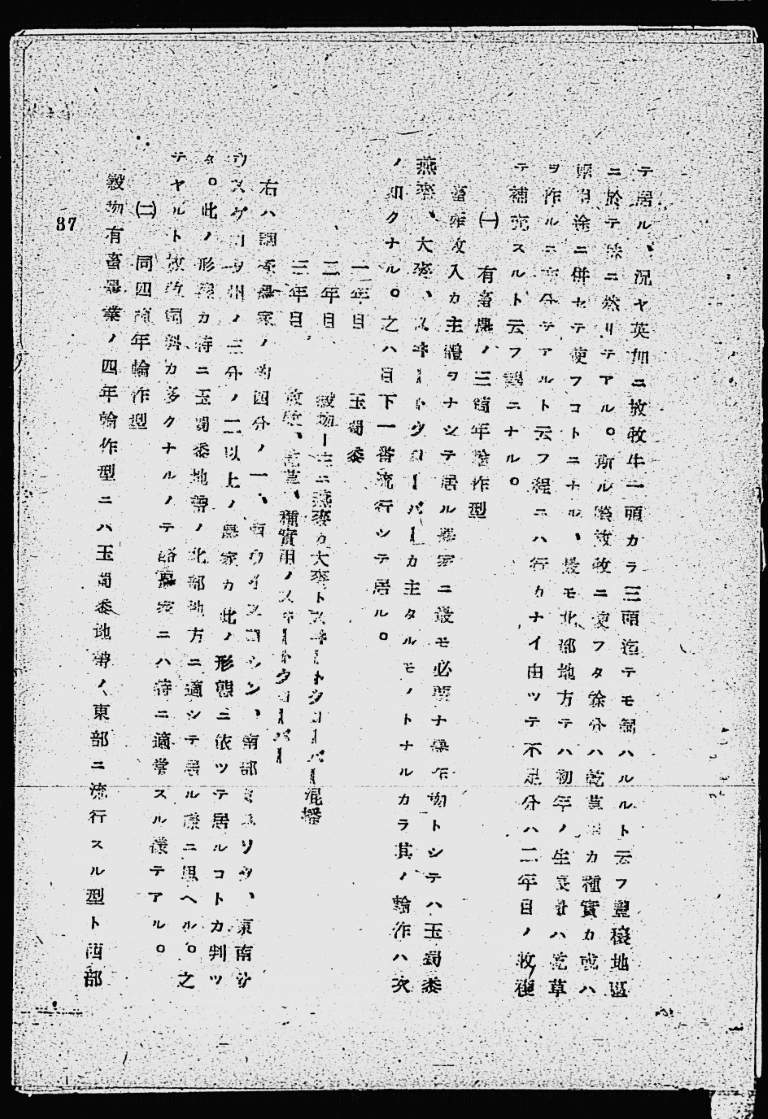 テ居ル、況ヤ英加ニ放牧牛一頭カラ三頭迄テモ飼ハルルト云フ豐穰地區
ニ於テ殊ニ然リテアル。斯ル放牧ニ使フタ餘分ハ乾草カ種實カ或ハ
用途ニ併セテ使フコトニナル、最モ北部地方テハ初年ノ生長量ハ乾草
ヲ作ルニ充分テアルト云フ程ニハ行カナイ由ツテ不足分ハ二年目ノ收穫
テ補充スルト云フ譯ニナル。
㈠ 有畜農ノ三箇年輪作型
畜産收入カ主體ヲナシテ居ル農家ニ最モ必要ナ農作物トシテハ玉蜀黍
燕麥、大麥、スヰートクローバーカ主タルモノトナルカラ其ノ輪作ハ次
ノ如クナル。之ハ目下一番流行シテ居ル。
一年目 玉蜀黍
二年目 穀物ー主ニ燕麥カ大麥トスヰートクローバー混播
三年目 放牧、乾草、種實用ノスヰートクローバー
右ハ調査農家ノ約四分ノ一、西ウイスコンシン、南部ミネソタ、東南サ
ウスダコタ州ノ三分ノ二以上ノ農家カ此ノ形態ニ依ツテ居ルコトカ判ツ
タ。此ノ形態カ特ニ玉蜀黍地帶ノ北部地方ニ適シテ居ル樣ニ思ヘル。之
テヤルト放牧飼料カ多クナルノテ酪農家ニハ特ニ適當スル樣テアル。
㈡ 同四箇年輪作型
穀物有畜農業ノ四年輪作型ニハ玉蜀黍地帶ノ東部ニ流行スル型ト西部
87